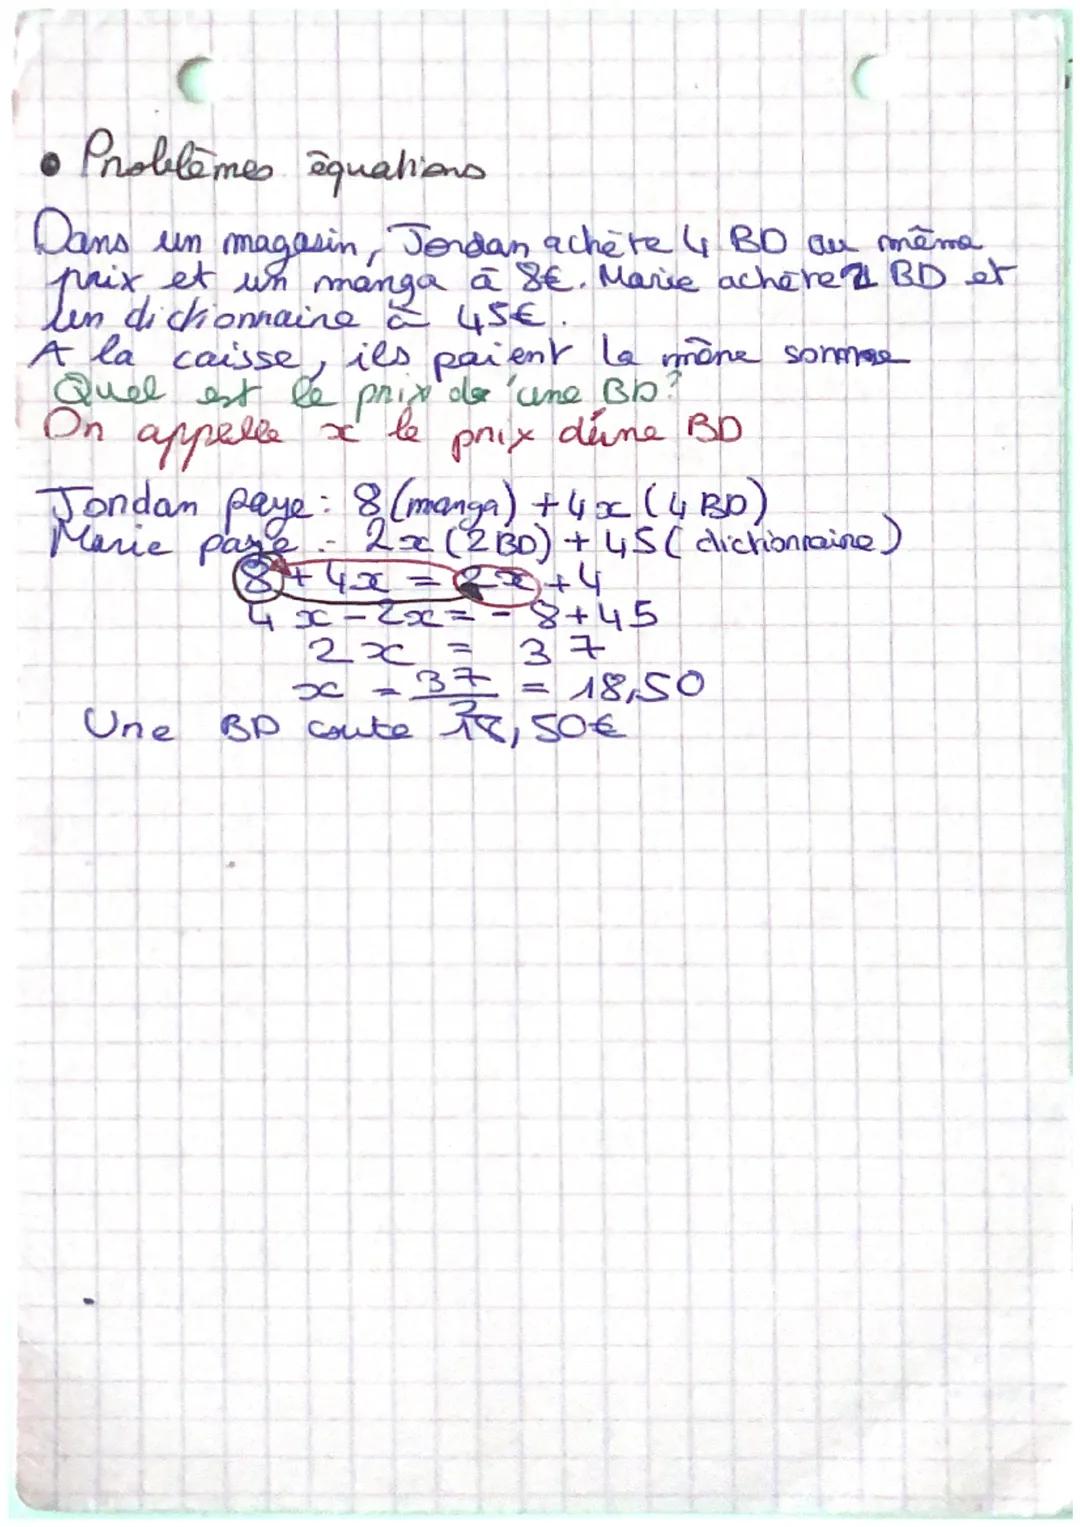 • Problèmes équations
Dans un magasin, Jordan achète 4 BD au même
prix et un manga à 8€. Marie achète 2 BD et
un dictionnaire à 45€.
A la caisse, ils paient la même somme
Quel est le prix de 'une BD?
On appelle x le prix d'une BD
Jordan paye : 8 (manga) + 4x (4 BD)
Marie paye : 2x (2BD) + 45 ( dictionnaire )
8 + 4x = 2x + 4
4x - 2x = - 8 + 45
2x = 37
x = 37/2 = 18,50
Une BD coute 18,50€